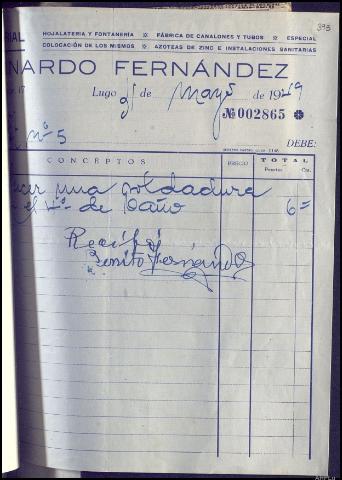 395
HOJALATERIA Y FONTANERÍA ※ FÁBRICA DE CANALONES Y TUBOS ※ ESPECIAL
COLOCACIÓN DE LOS MISMOS ※ AZOTEAS DE ZINC E INSTALACIONES SANITARIAS
NARDO FERNÁNDEZ
17
Lugo 31 de Mayo de 1949
Nº 002865
nº 5
DEBE:
CONCEPTOS PRECIO TOTAL
Pesetas Cts.
una soldadura
el de baño 6=
Recibí
Benito Fernández